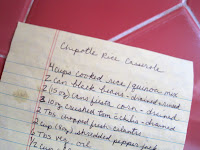 Chipotle Rice Casserole
4 cups cooked rice/quinoa mix
2 can black beans - drained + rinsed
2 (15 oz) cans fiesta corn - drained
10 oz crushed tom c chilis - drained
Tbs chopped fresh cilantro
cup (4oz) shredded pepper jack
Tbs veg. orb